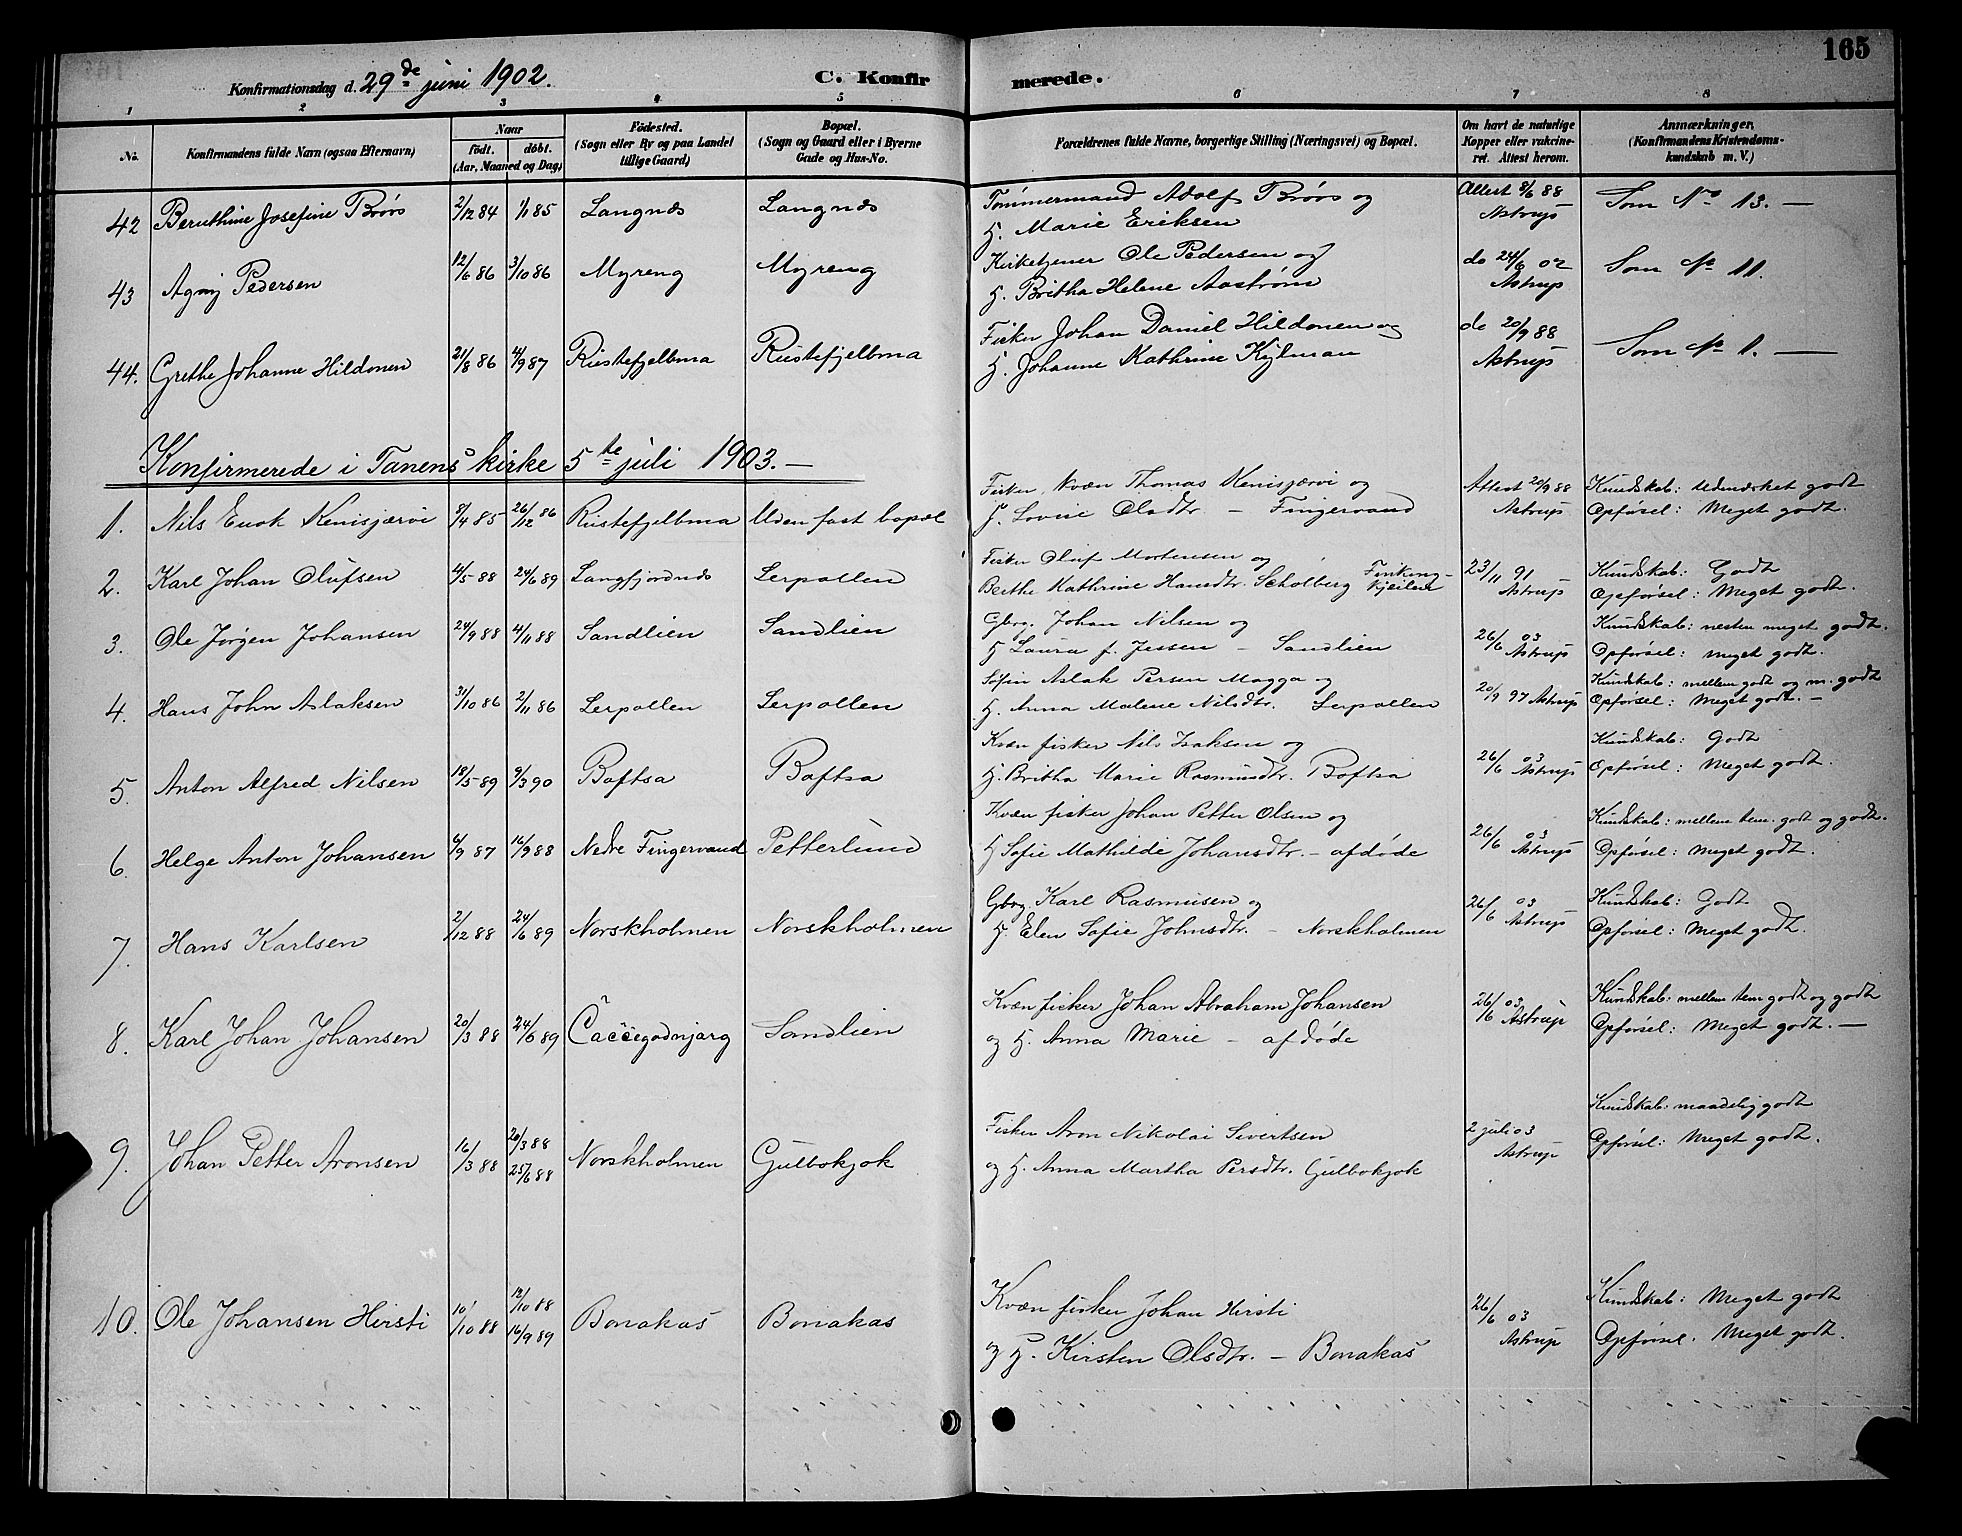 165
Konfirmationsdag d. 29de juni 1902.
C. Konfirmerede.
1 2 3 4 5 6 7 8
No. Konfirmandens fulde Navn (ogsaa Efternavn) Naar født. døbt. (Aar, Maaned og Dag) Fødested. (Sogn eller By og paa Landet tillige Gaard) Bopæl. (Sogn og Gaard eller i Byerne Gade og Hus-No. Forældrenes fulde Navne, borgerlige Stilling (Næringsvei) og Bopæl. Om havt de naturlige Kopper eller vakcineret. Attest herom. Anmærkninger, (Konfirmandens Kristendomskundskab m. V.)
42 Beruthine Josefine Brøvs 2/12 84 1/1 85 Langnæs Langnæs Tømmermand Adolf Brøvs og Attest 8/6 88 Som No 13. —
H. Marie Eriksen Astrup
43 Agnij Pedersen 12/6 86 3/10 86 Myreng Myreng Kirketjener Ole Pedersen og do 24/6 02 Som No 11.
H. Britha Helene Aastrøm Astrup
44. Grethe Johanne Hildonen 21/8 86 4/9 87 Rustefjelbma Rustefjelbma Fisker Johan Daniel Hildonen og do 20/9 88 Som No 1. —
H. Johanne Kathrine Kylman Astrup
Konfirmerede i Tanens kirke 5te juli 1903. —
1. Nils Enok Kenisjærvi 8/4 85 26/12 86 Rustefjelbma Uden fast bopæl Fisker, Kvæn Thomas Kenisjærvi og Attest 20/9 88 Kundskab: Udmærket godt
H. Lovise Olsdtr. — Fingervand Astrup Opførsel: Meget godt.
2. Karl Johan Olufsen 4/5 88 24/6 89 Langfjordnæs Lerpollen Fisker Oluf Mortensen og 23/11 91 Kundskab: Godt
Berthe Kathrine Hansdtr. Schólberg Astrup Opførsel: Meget godt.
3. Ole Jørgen Johansen 24/9 88 4/11 88 Sandlien Sandlien Gbrg. Johan Nilsen og 26/6 03 Kundskab: nesten meget godt.
H Laura f. Jessen — Sandlien Astrup Opførsel: meget godt.
4. Hans John Aslaksen 31/10 86 2/11 86 Lerpollen Lerpollen Søfin Aslak Persen Magga og 20/9 97 Astrup Kundskab: mellem godt og m. godt
H. Anna Malene Nilsdtr. Lerpollen Opførsel: Meget godt. —
5. Anton Alfred Nilsen 18/5 89 9/3 90 Boftsa Boftsa Kvæn fisker Nils Isaksen og 26/6 03 Kundskab: Godt
H. Britha Marie Rasmusdtr. Boftsa Astrup Opførsel: Meget godt.
6. Helge Anton Johansen 6/9 87 16/9 88 Nedre Fingervand Petterlund Kvæn fisker Johan Petter Olsen og 26/6 03 Kundskab: mellem tem. godt og godt.
H Sofie Mathilde Johansdtr. — afdøde Astrup Opførsel: Meget godt.
7. Hans Karlsen 2/12 88 24/6 89 Norskholmen Norskholmen Gbrg. Karl Rasmusen og 26/6 03 Kundskab: Godt
H. Elen Sofie Johnsdtr. — Norskholmen Astrup Opførsel: Meget godt.
8. Karl Johan Johansen 20/3 88 24/6 89 Čaččegadnjarg Sandlien Kvæn fisker Johan Abraham Johansen 26/6 03 Kundskab: mellem tem godt og godt
og H. Anna Marie — afdøde Astrup Opførsel: Meget godt. —
9. Johan Petter Aronsen 16/3 88 20/3 88 25/6 88 Norskholmen Gulbokjok Fisker Aron Nikolai Sivertsen 2 juli 03 Kundskab: maadelig godt
og H. Anna Martha Persdtr. Gulbokjok Astrup Opførsel: Meget godt.
10. Ole Johansen Hirsti 10/10 88 12/10 88 16/9 89 Bonakas Bonakas Kvæn fisker Johan Hirsti 26/6 03 Kundskab: Meget godt
og H. Kirsten Olsdtr. — Bonakas Astrup Opførsel. Meget godt.